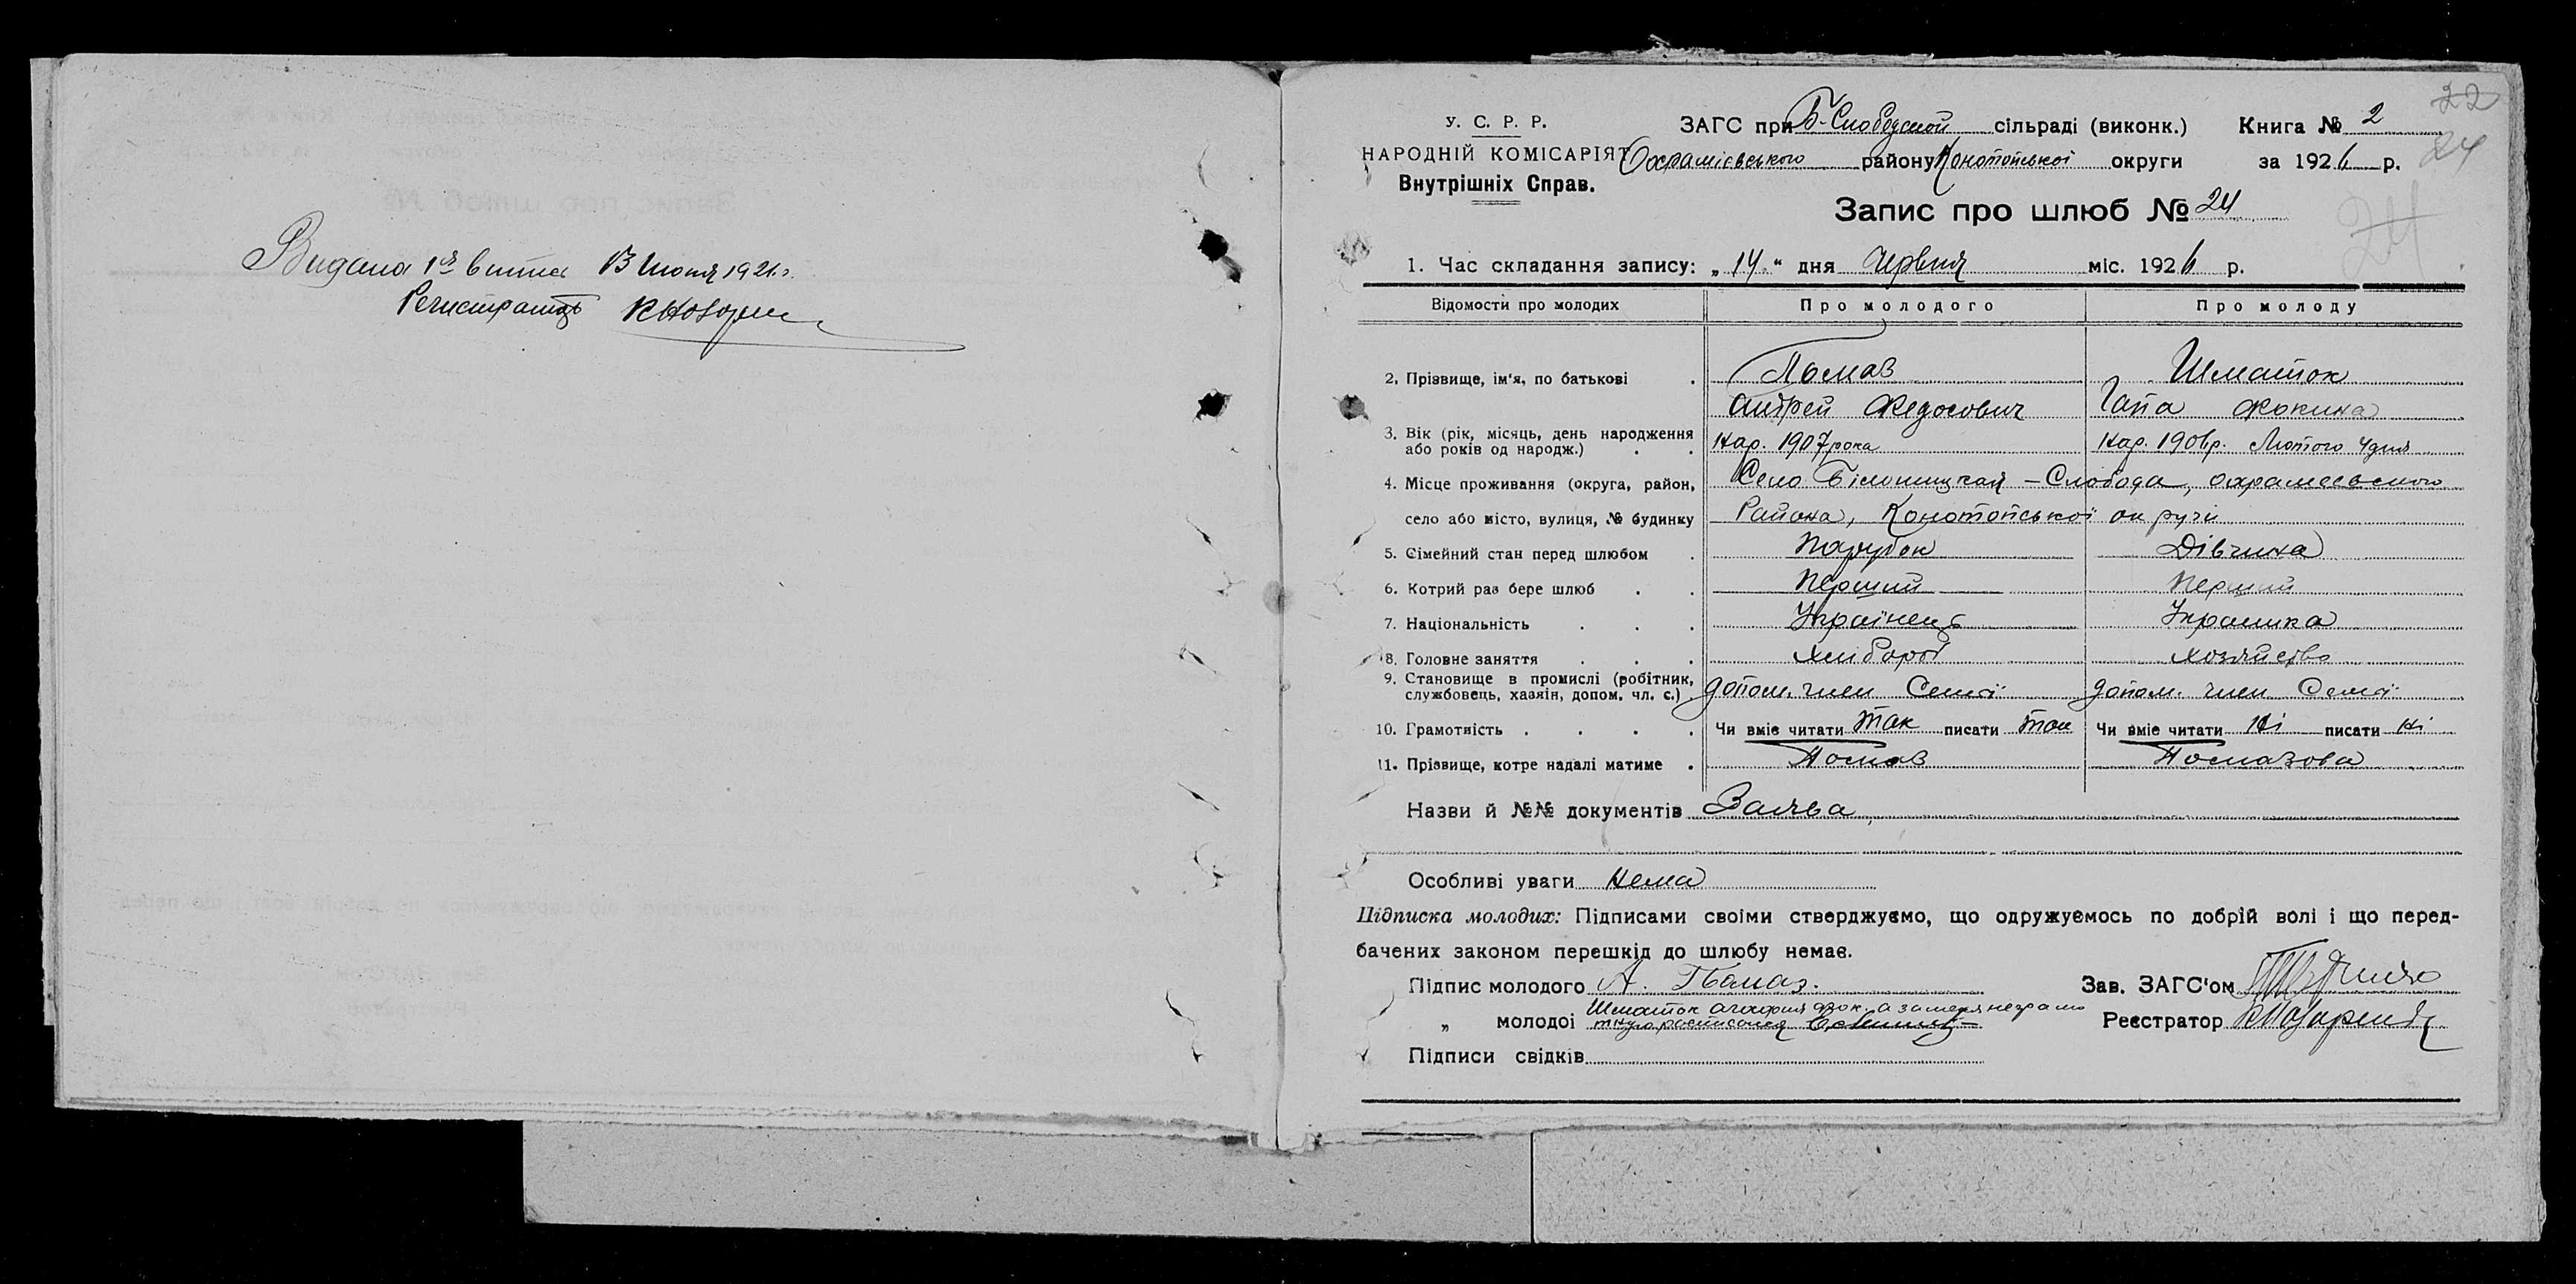 Видана 1ая витка 13 Июня 1926 г.
Регистратор
22
24
24
У. С. Р. Р.
НАРОДНІЙ КОМІСАРІЯТ
Внутрішніх Справ.
ЗАГС при Б-Слободской сільраді (виконк.) Книга № 2
Охрамієвського району Конотопської округи за 1926 р.
Запис про шлюб № 24
1. Час складання запису: „14.“ дня Червня міс. 1926 р.
Відомости про молодих Про молодого Про молоду
2. Прізвище, ім'я, по батькові . Помаз Шматок
Андрей Федосович Гапа Фокина
3. Вік (рік, місяць, день народження
або років од народж.) . . Нар. 1907 рока Нар. 1906 р. Лютого 4 дня
4. Місце проживання (округа, район, Село Білопицкая – Слобода, Охрамеевского
село або місто, вулиця, № будинку Района, Конотопської округи
5. Сімейний стан перед шлюбом . Парубок Дівчина
6. Котрий раз бере шлюб . . Перший Перший
7. Національність . . . Українець Украинка
8. Головне заняття . . . Хлібороб Хозяйство
9. Становище в промислі (робітник,
службовець, хазяін, допом. чл. с.) допом. член Семї допом. член Семї
10. Грамотність . . . . Чи вміє читати так писати так Чи вміє читати Ні писати Ні
11. Прізвище, котре надалі матиме . Помаз Помазова
Назви й №№ документів Заява
Особливі уваги Нема
Підписка молодих: Підписами своіми стверджуємо, що одружуємось по добрій волі і що перед-
бачених законом перешкід до шлюбу немає.
Підпис молодого А. Помаз. Зав. ЗАГС'ом
Шматок Агафия Фок. а за мея неграмо
„ молодоі тную росписался Реєстратор
Підписи свідків